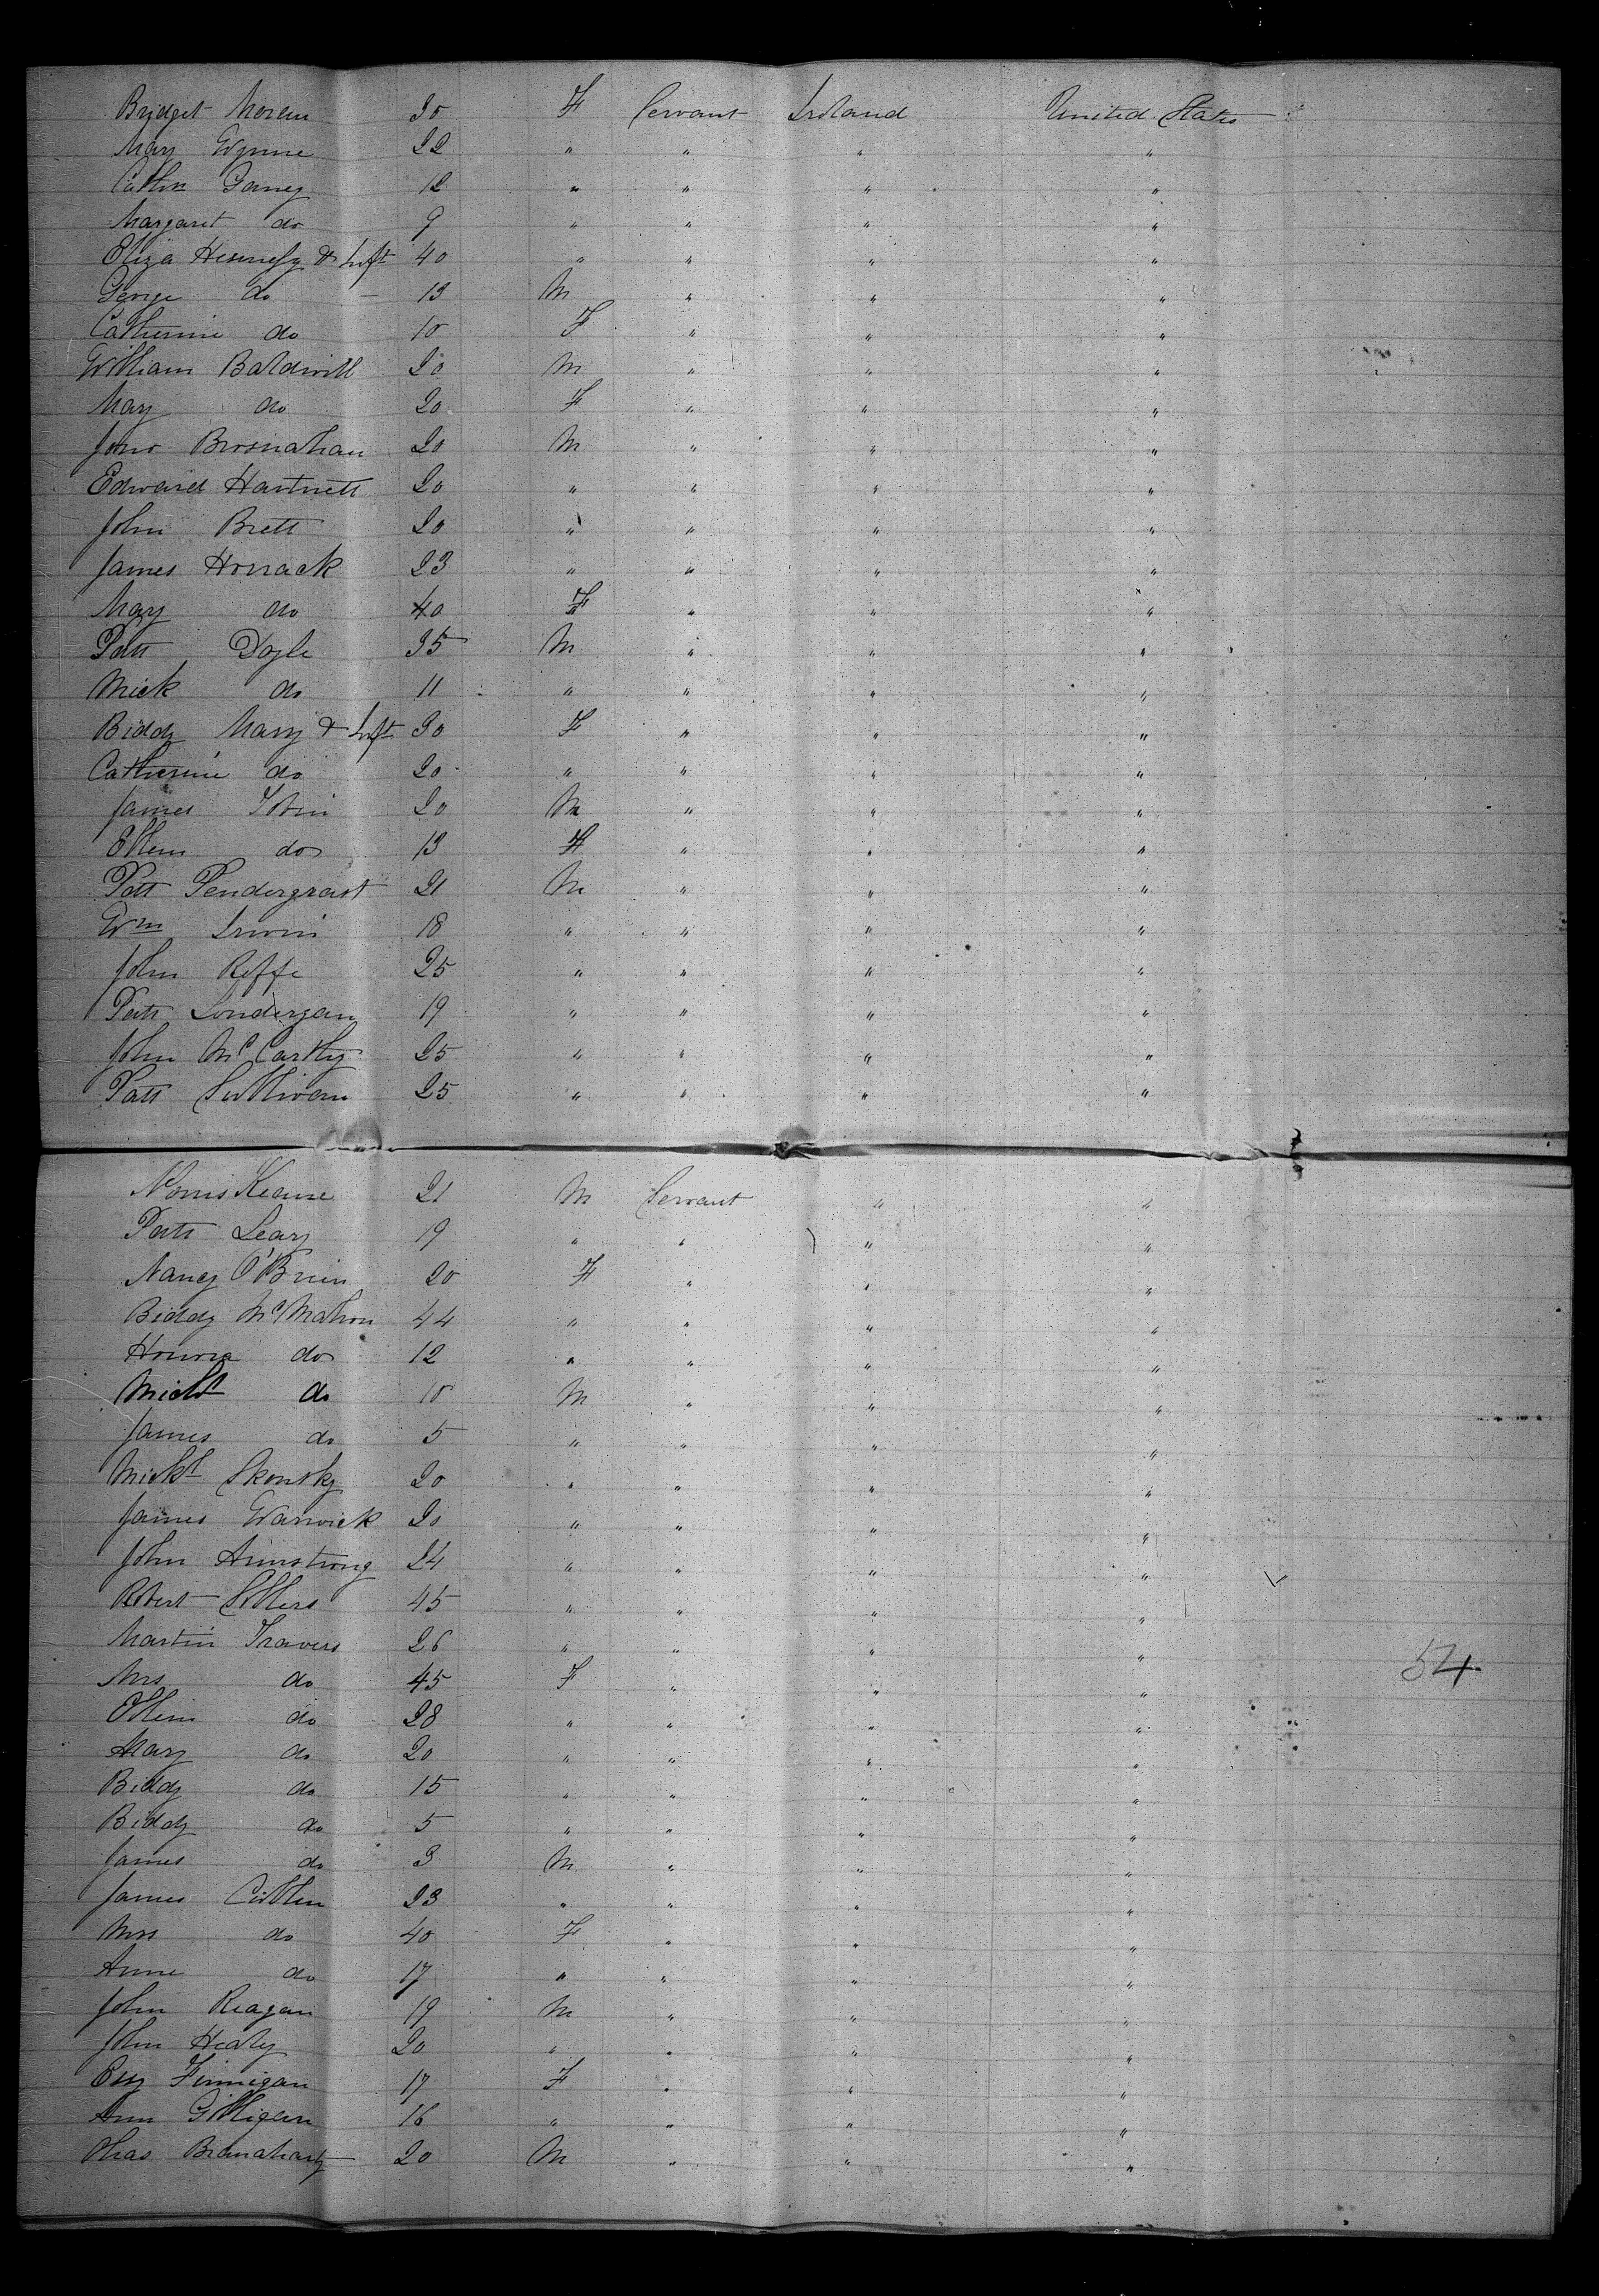 Bridget Moran 30 F Servant Ireland United States
Mary Wynne 22 " " " "
Cathn Ganey 12 " " " "
Margaret do 9 " " " "
Eliza Hennessy & Inft 40 " " " "
George do 13 M " " "
Catherine do 10 F " " "
William Baldwill 20 M " " "
Mary do 20 F " " "
Brosnahan 20 M " " "
Edward Hartnett 20 " " " "
John Brett 20 " " " "
James Horrack 23 " " " "
Mary do 40 F " " "
Patt Doyle 35 M " " "
Mick do 11 " " " "
Biddy Mary & Inft 30 F " " "
Catherine do 20 " " " "
James Tobin 20 M " " "
Ellen do 13 F " " "
Patt Pendergrast 21 M " " "
Wm Irwin 18 " " " "
John Roffe 25 " " " "
Patt Londergan 19 " " " "
John McCarthy 25 " " " "
Patt Sullivan 25 " " " "
Norris Keane 21 M Servant " "
Patt Leary 19 " " " "
Nancy O'Brien 20 F " " "
Biddy McMahon 44 " " " "
Honora do 12 " " " "
Michl do 10 M " " "
James do 5 " " " "
Michl 20 " " " "
James Warwick 20 " " " "
John Armstrong 24 " " " "
Robert Sellers 45 " " " "
Martin Travers 26 " " " "
Mrs do 45 F " " "
Ellen do 28 " " " "
Mary do 20 " " " "
Biddy do 15 " " " "
Biddy do 5 " " " "
James do 3 M " " "
James Cullen 23 " " " "
Mrs do 40 F " " "
Anne do 17 " " " "
John Reagan 19 M " " "
John Healy 20 " " " "
Essy Finnigan 17 F " " "
Ann Gilligan 16 " " " "
Chas 20 M " " "
54